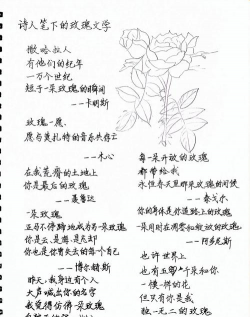 诗人笔下的玫瑰文学
撒哈拉人
有他们的纪年
一万个世纪
短于一朵玫瑰的瞬间
——卡明斯
玫瑰一愿
愿与莫扎特的音乐共存亡
——木心
在我荒瘠的土地上
你是最后的玫瑰
——聂鲁达
一朵玫瑰
正马不停蹄地成为另一朵玫瑰
你是云、是海、是忘却
你也是你曾失去的每个自己
——博尔赫斯
昨天，我身边有个人
大声喊出你的名字
我觉得仿佛一朵玫瑰
每一朵开放的玫瑰
都带给我
永恒春天里那朵玫瑰的问候
——泰戈尔
你的身体是你道路上的玫瑰
一朵同时在凋零和绽放的玫瑰
——阿多尼斯
也许世界上
也有五千朵和你
一模一样的花
但只有你是我
独一无二的玫瑰